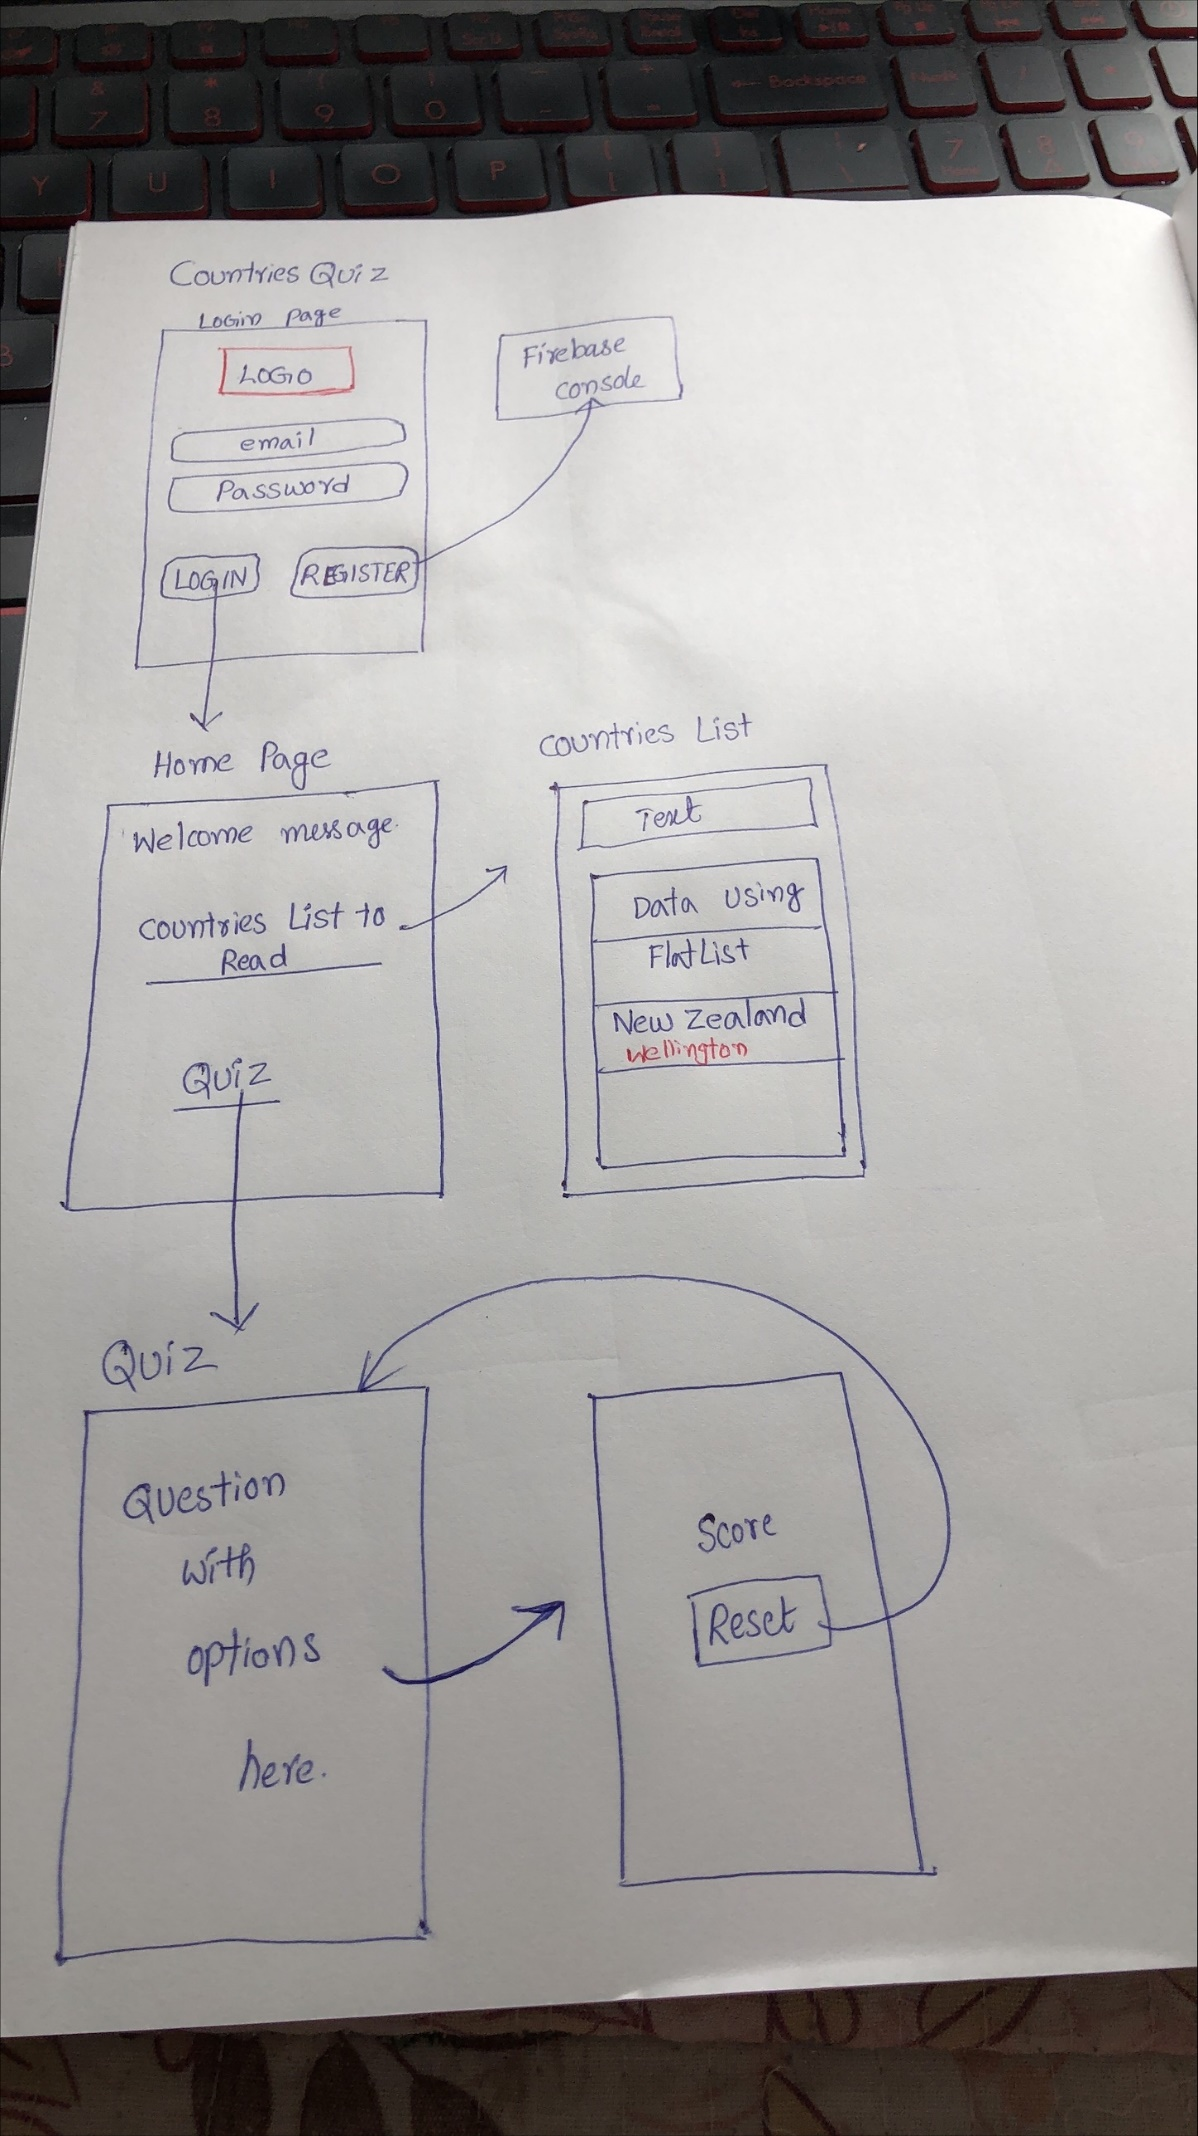 Y U I O P
7 8 9 0
Backspace
Countries Quiz
Login Page
LOGO
email
Password
LOGIN REGISTER
Firebase
console
Home Page
Welcome message.
Countries List to
Read
Quiz
Countries List
Text
Data using
FlatList
New Zealand
Wellington
Quiz
Question
with
options
here.
Score
Reset